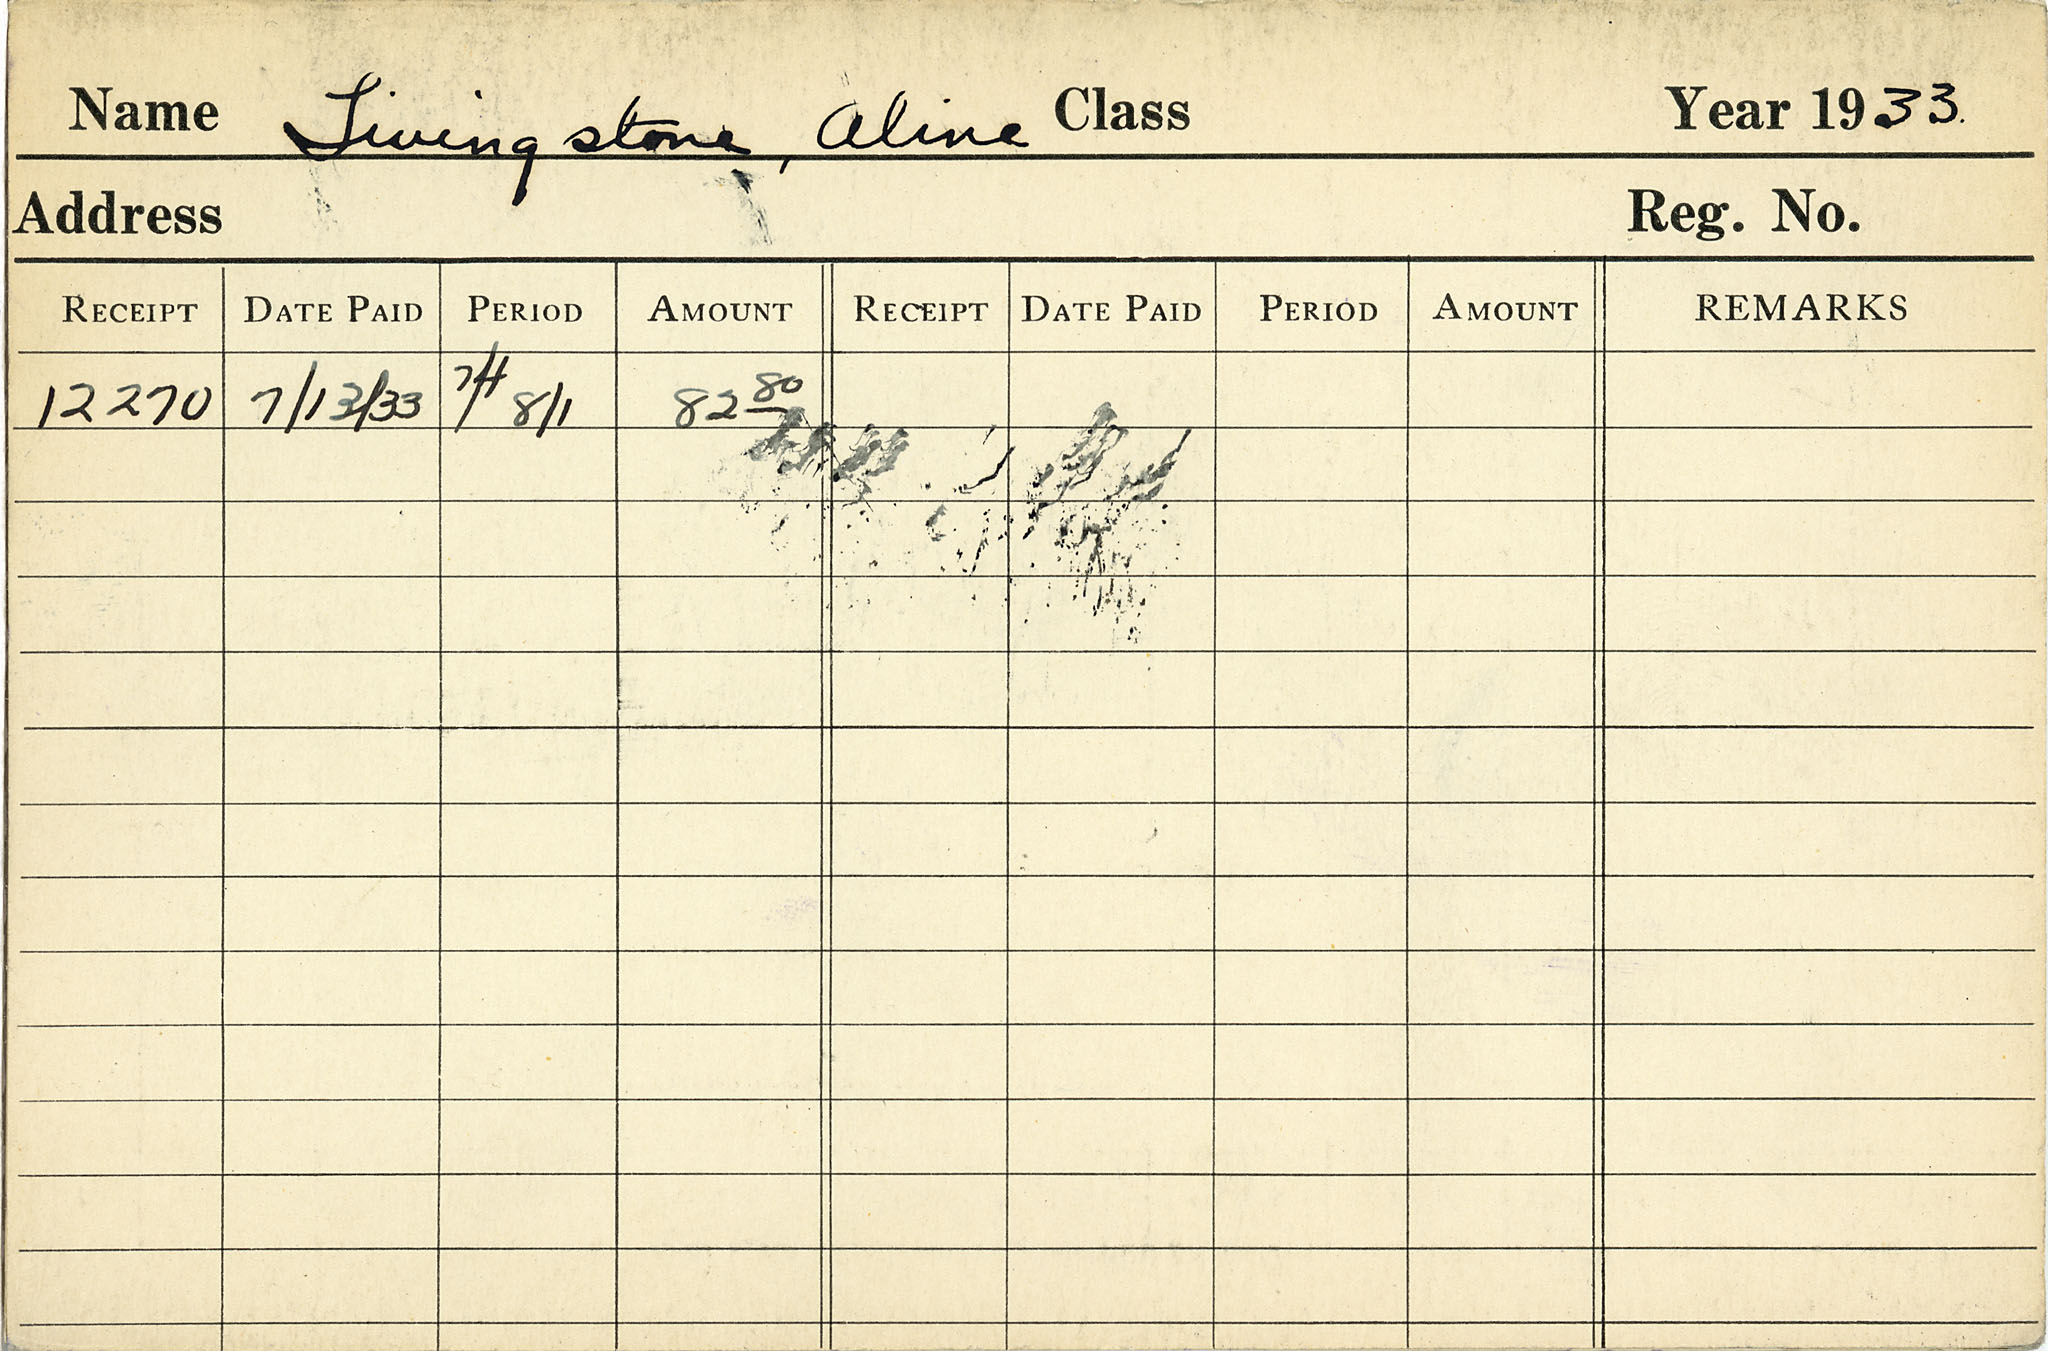 Name Livingstone, Aline Class Year 1933.
Address Reg. No.
RECEIPT DATE PAID PERIOD AMOUNT RECEIPT DATE PAID PERIOD AMOUNT REMARKS
12270 7/13/33 8/1 82 80